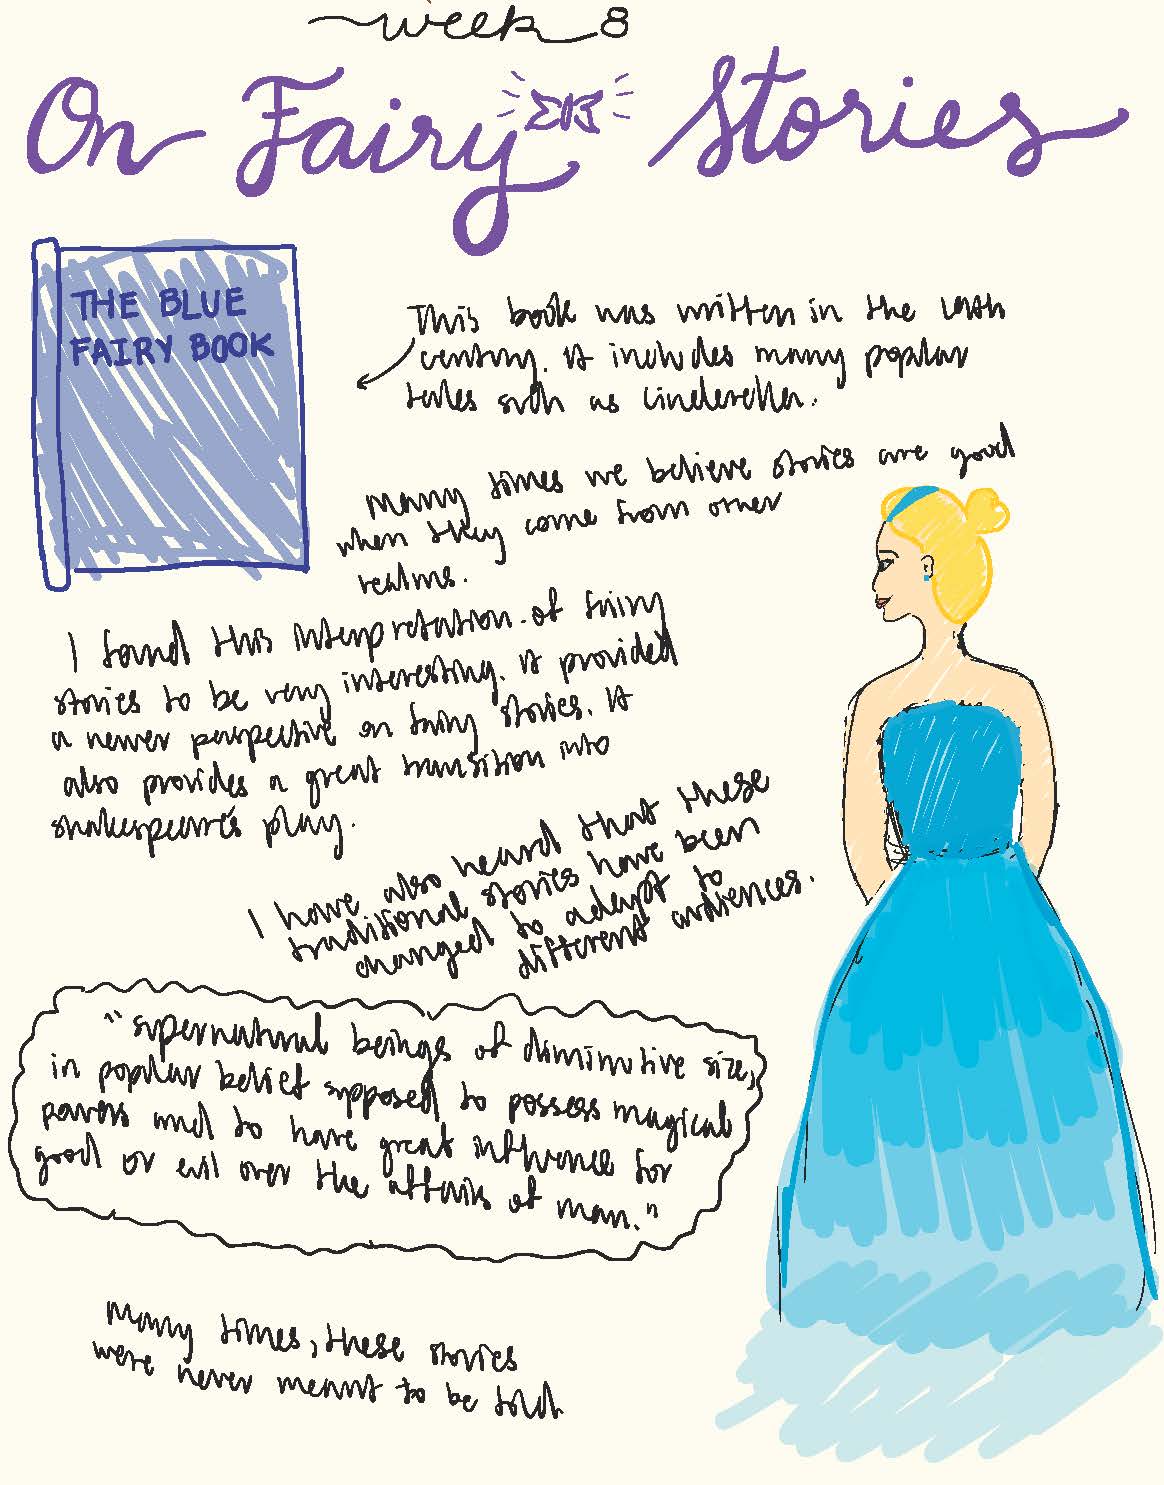 week 8
On Fairy Stories
THE BLUE
FAIRY BOOK
This book was written in the 19th
century. It includes many popular
tales such as Cinderella.
Many times we believe stories are good
when they come from other
realms.
I found this interpretation of fairy
stories to be very interesting. It provided
a newer perspective on fairy stories. It
also provides a great transition into
shakespeare's play.
I have also heard that these
traditional stories have been
changed to adapt to
different audiences.
"supernatural beings of diminutive size,
in popular belief supposed to possess magical
powers and to have great influence for
good or evil over the affairs of man."
Many times, these stories
were never meant to be told